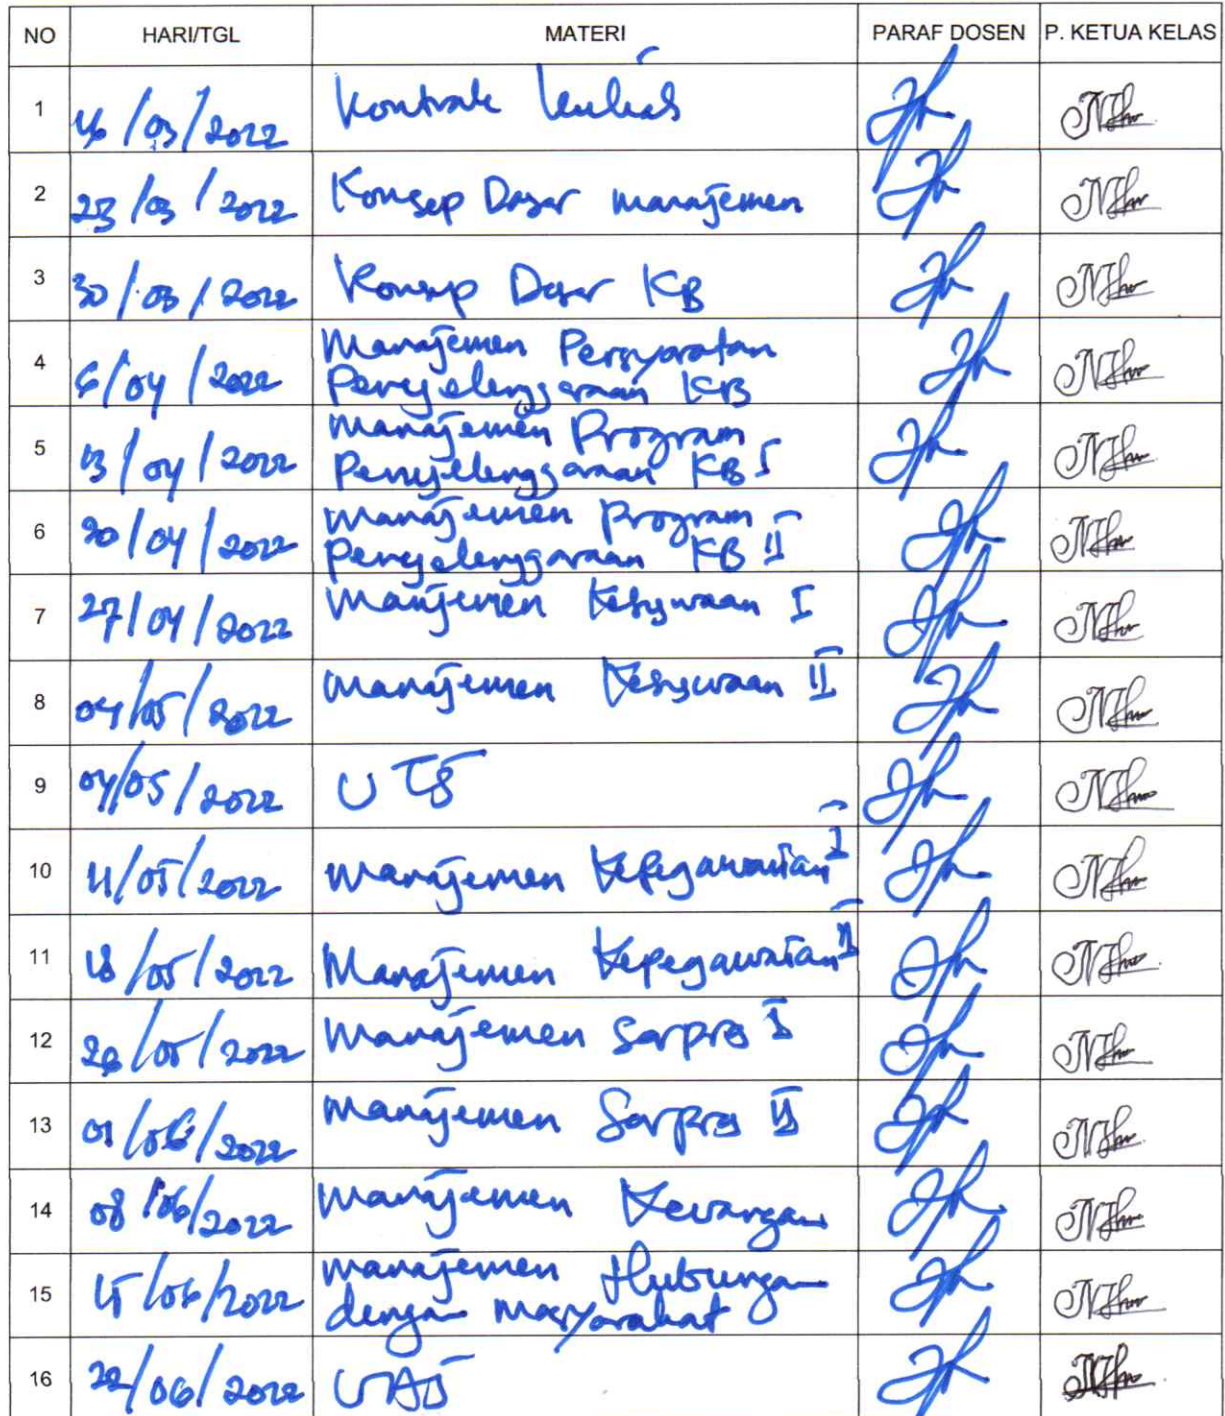 NO HARI/TGL MATERI PARAF DOSEN P. KETUA KELAS
1 16/03/2022 Kontrak kuliah
2 23/03/2022 Konsep Dasar manajemen
3 30/03/2022 Konsep Dasar KB
4 6/04/2022 Manajemen Persyaratan
Penyelenggaraan KB
5 13/04/2022 Manajemen Program
Penyelenggaraan KB I
6 20/04/2022 Manajemen Program
Penyelenggaraan KB II
7 27/04/2022 Manajemen Kesiswaan I
8 04/05/2022 Manajemen Kesiswaan II
9 04/05/2022 UTS
10 11/05/2022 Manajemen Kepegawaian I
11 18/05/2022 Manajemen Kepegawaian II
12 /05/2022 Manajemen Sarpras I
13 01/06/2022 Manajemen Sarpras II
14 08/06/2022 Manajemen Keuangan
15 15/06/2022 Manajemen Hubungan
dengan Masyarakat
16 22/06/2022 UAS